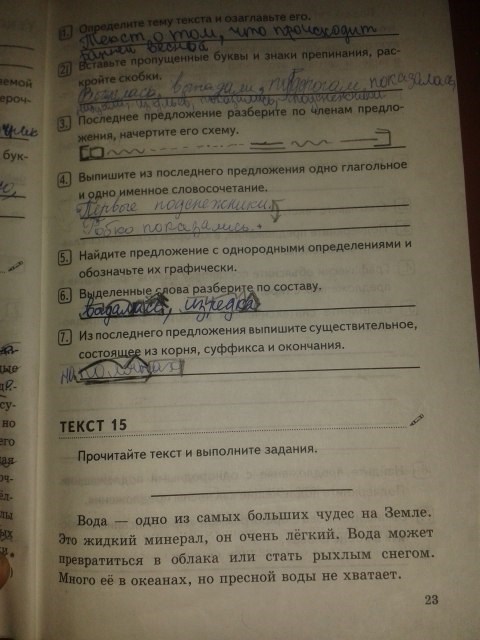 1. Определите тему текста и озаглавьте его.
Текст о том, что происходит
ранней весной
2. Вставьте пропущенные буквы и знаки препинания, рас-
кройте скобки.
показалась,
3. Последнее предложение разберите по членам предло-
жения, начертите его схему.
4. Выпишите из последнего предложения одно глагольное
и одно именное словосочетание.
Первые подснежники,
Робко показались.
5. Найдите предложение с однородными определениями и
обозначьте их графически.
6. Выделенные слова разберите по составу.
изредка
7. Из последнего предложения выпишите существительное,
состоящее из корня, суффикса и окончания.
на полянках
ТЕКСТ 15
Прочитайте текст и выполните задания.
Вода — одно из самых больших чудес на Земле.
Это жидкий минерал, он очень лёгкий. Вода может
превратиться в облака или стать рыхлым снегом.
Много её в океанах, но пресной воды не хватает.
23